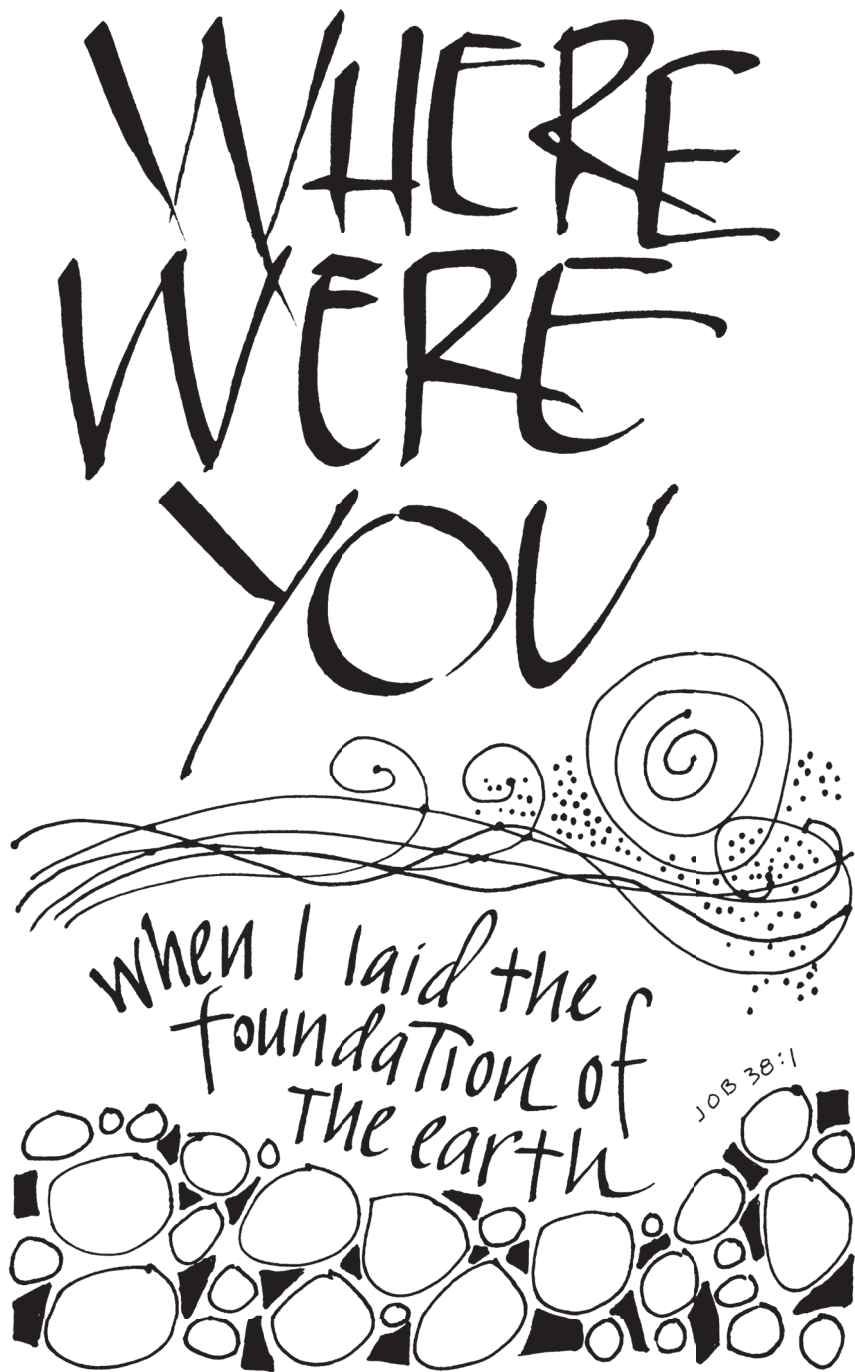 WHERE
WERE
YOU
when I laid the
foundation of
the earth
JOB 38:1